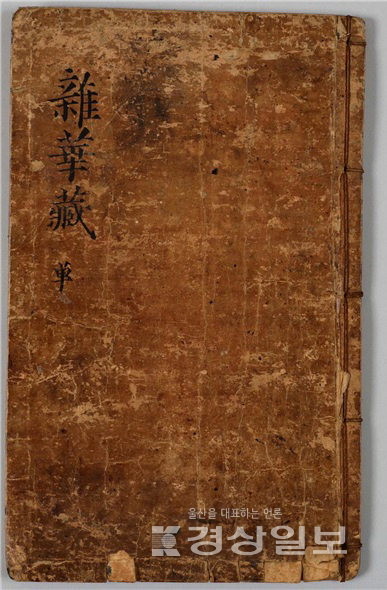 雜華藏
單
울산을 대표하는 언론
경상일보